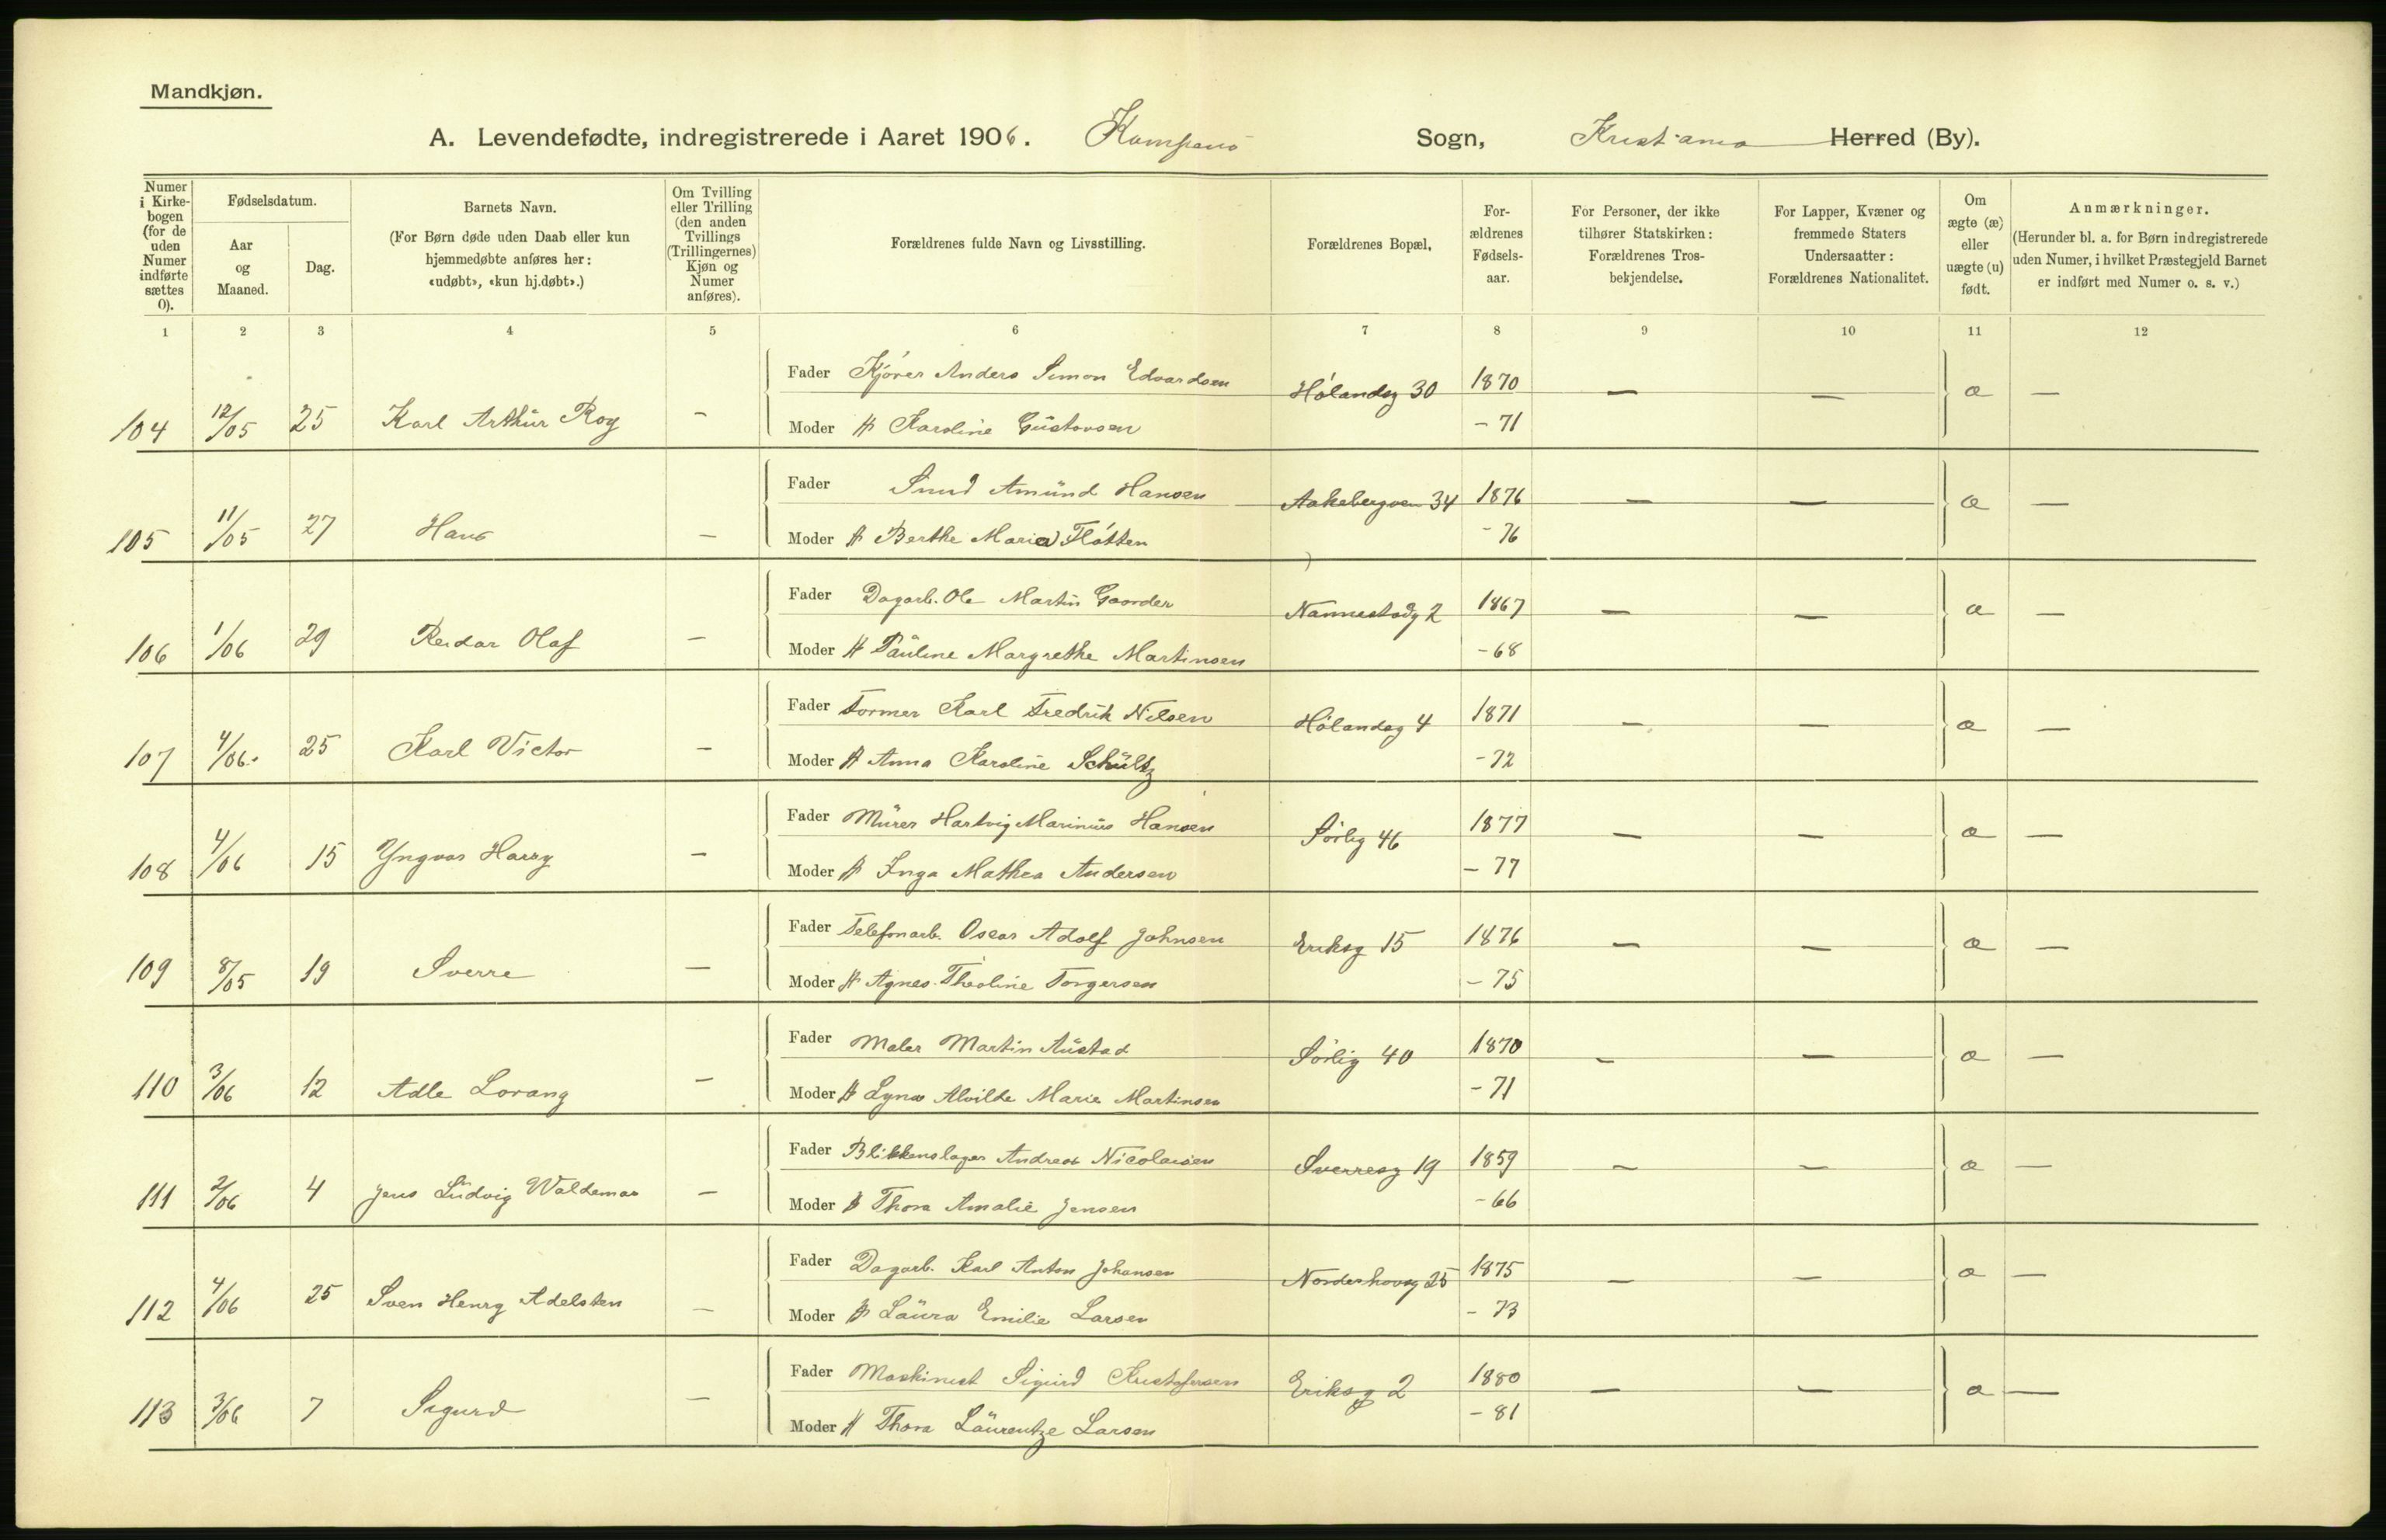 Mandkjøn.
A. Levendefødte, indregistrerede i Aaret 1906. Kampens Sogn, Kristiania Herred (By).
Numer i Kirkebogen (for de uden Numer indførte sættes 0).
Fødselsdatum.
Aar og Maaned.
Dag.
Barnets Navn.
(For Børn døde uden Daab eller kun hjemmedøbte anføres her: «udøbt», «kun hj.døbt».)
Om Tvilling eller Trilling (den anden Tvillings (Trillingernes) Kjøn og Numer anføres).
Forældrenes fulde Navn og Livsstilling.
Forældrenes Bopæl.
Forældrenes Fødselsaar.
For Personer, der ikke tilhører Statskirken: Forældrenes Trosbekjendelse.
For Lapper, Kvæner og fremmede Staters Undersaatter: Forældrenes Nationalitet.
Om ægte (æ) eller uægte (u) født.
Anmærkninger.
(Herunder bl. a. for Børn indregistrerede uden Numer, i hvilket Præstegjeld Barnet er indført med Numer o. s. v.)
1 2 3 4 5 6 7 8 9 10 11 12
Fader Kjører Anders Simon Edvardsen Hølandsg 30 1870 — — æ —
104 12/05 25 Karl Arthur Roy — Moder H Karoline Gustavsen - 71
Fader Smed Amund Hansen Aakebergven 34 1876 — — æ —
105 11/05 27 Hans — Moder H Berthe Marie Fløtten - 76
Fader Dagarb. Ole Martin Gaarder Nannestadg 2 1867 — — æ —
106 1/06 29 Reidar Olaf — Moder H Pauline Margrethe Martinsen - 68
Fader Former Karl Fredrik Nilsen Hølandsg 4 1871 — — æ —
107 4/06. 25 Karl Victor — Moder H Anna Karoline Schultz - 72
Fader Murer Hartvig Marinius Hansen Sørlig 46 1877 — — æ —
108 4/06 15 Yngvar Harry — Moder H Inga Mathea Andersen - 77
Fader Telefonarb. Oscar Adolf Johnsen Eriksg 15 1876 — — æ —
109 8/05 19 Sverre — Moder H Agnes Theoline Torgersen - 75
Fader Maler Martin Austad Sørlig 40 1870 — — æ —
110 3/06 12 Adle Lorang — Moder H Lyna Alvilde Marie Martinsen - 71
Fader Blikkenslager Andreas Nicolaisen Sverresg 19 1859 — — æ —
111 2/06 4 Jens Ludvig Waldemar — Moder H Thora Amalie Jensen - 66
Fader Dagarb. Karl Anton Johansen Norderhovsg 25 1875 — — æ —
112 4/06 25 Sven Henry Adelsten — Moder H Laura Emilie Larsen - 73
Fader Maskinist Sigurd Kristofersen Eriksg 2 1880 — — æ —
113 3/06 7 Sigurd — Moder H Thora Laurentze Larsen - 81